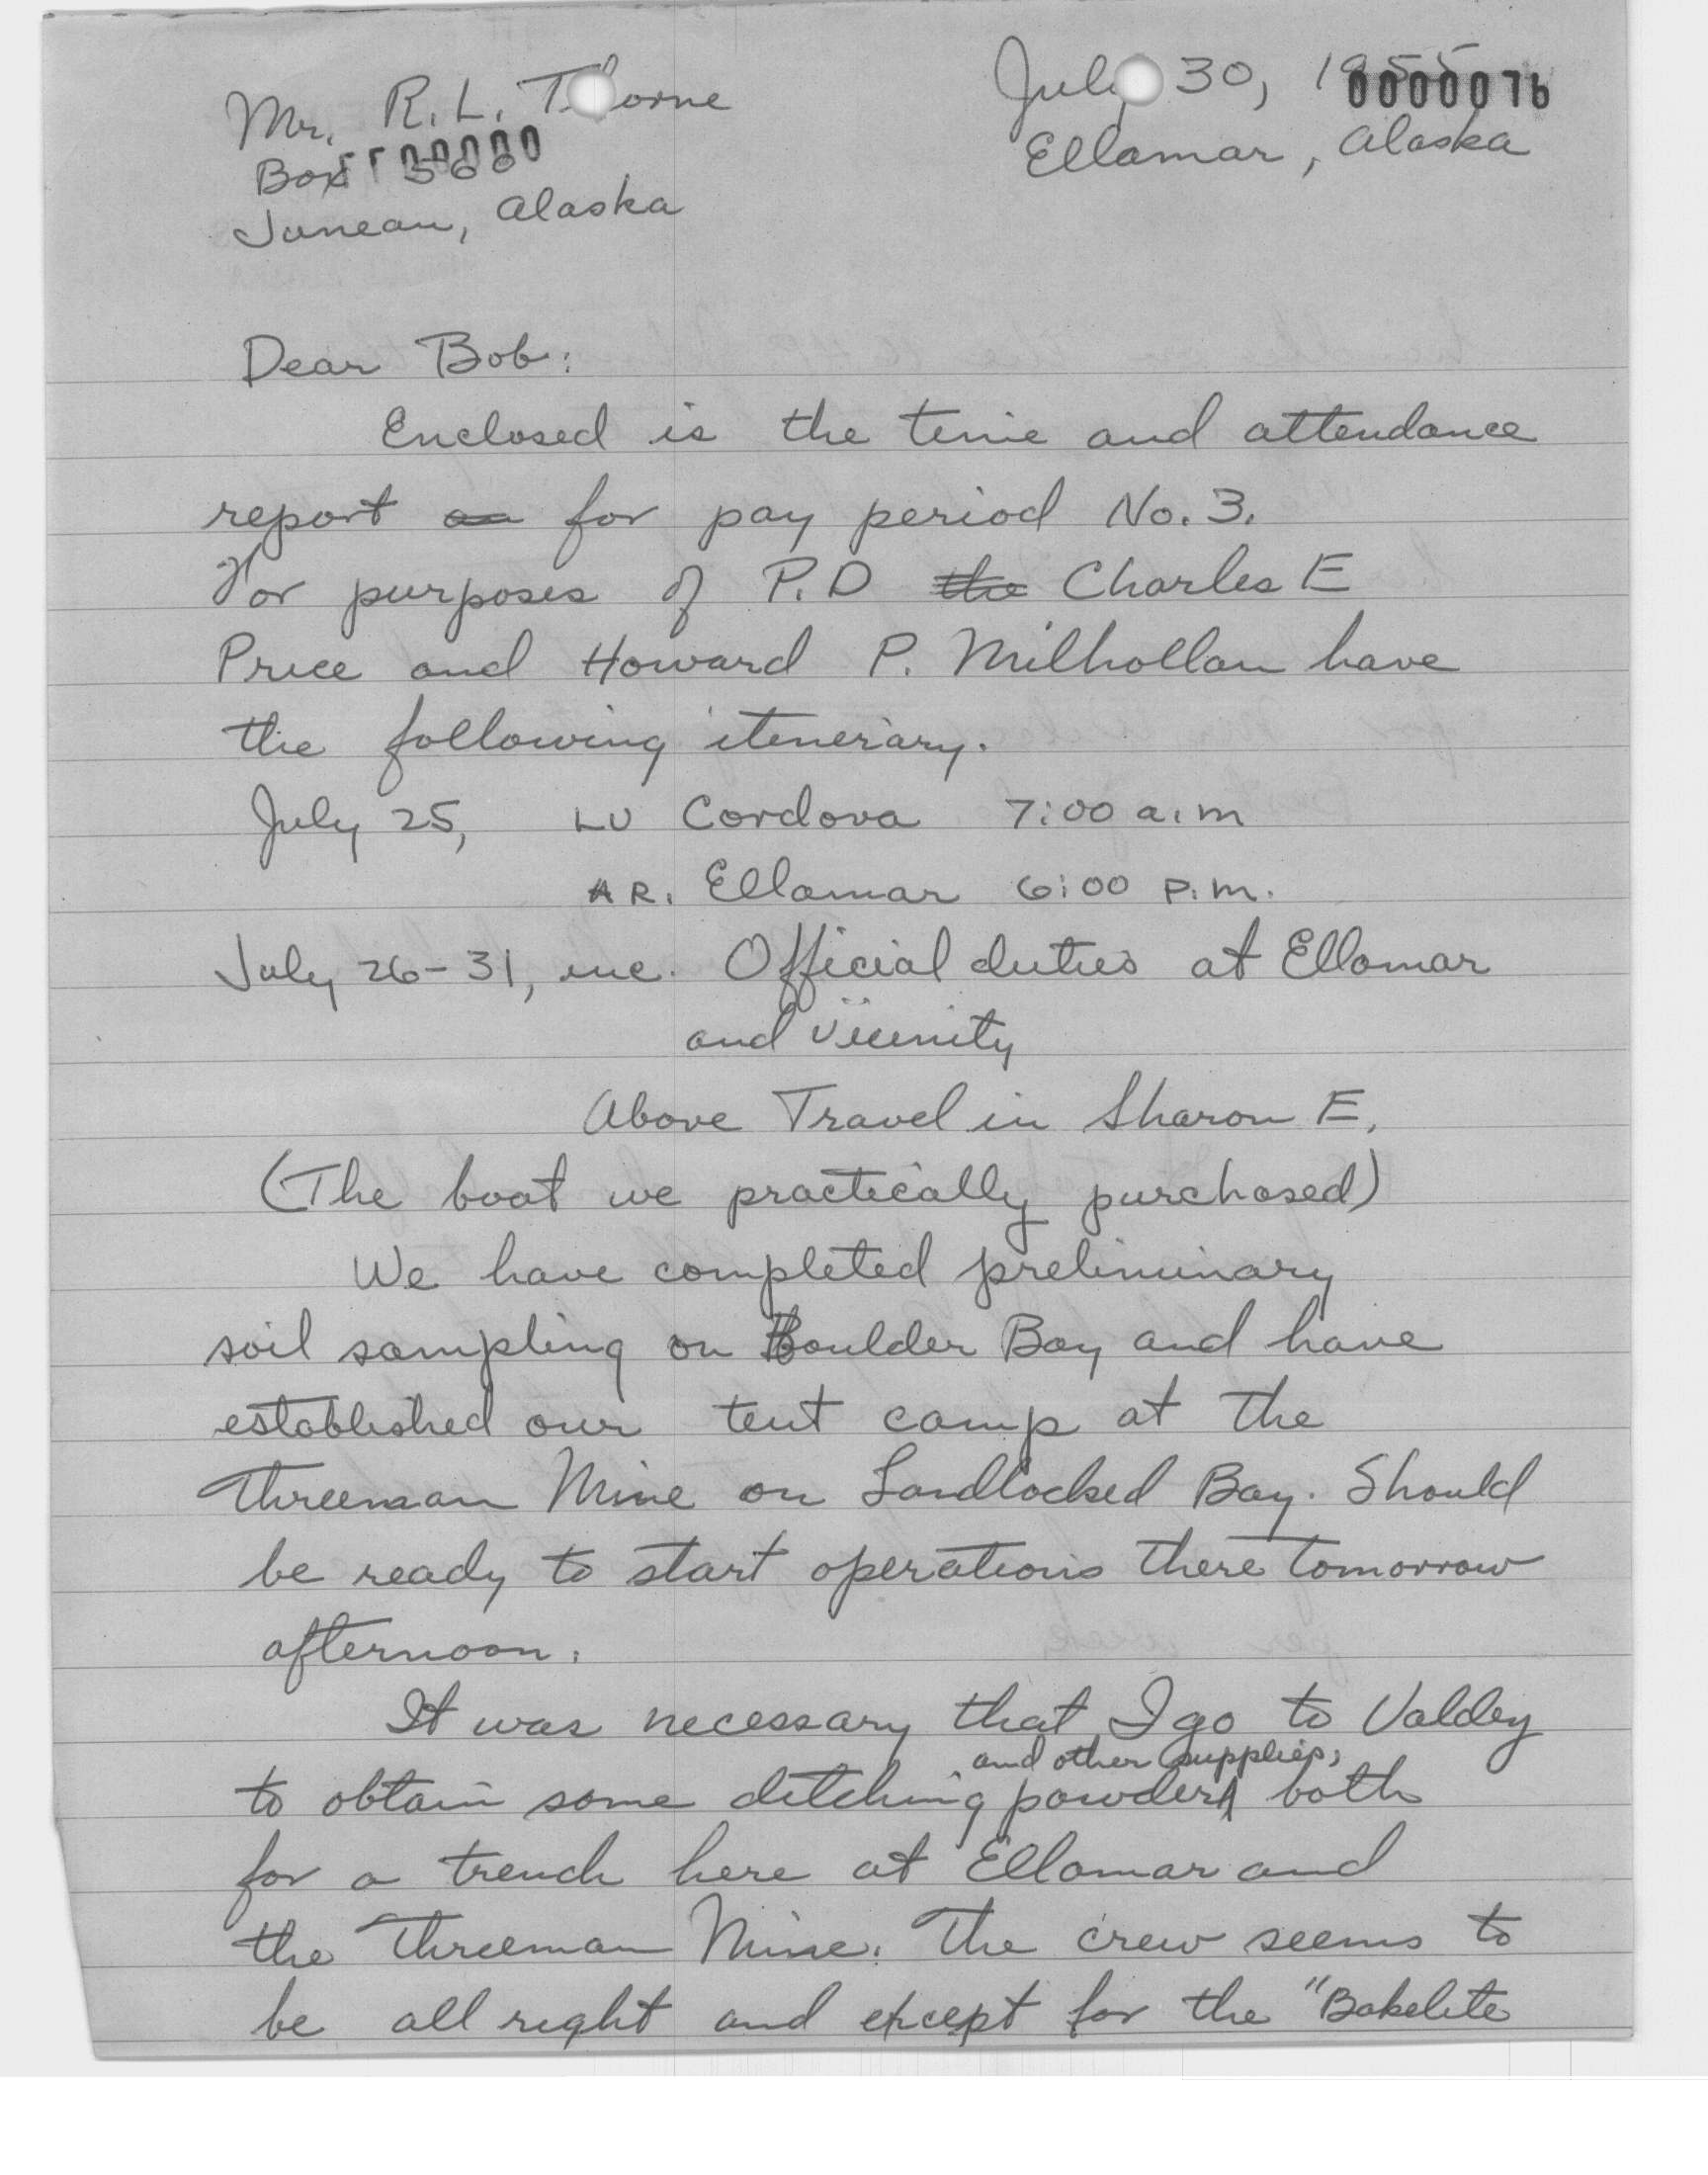 July 30, 1955
0000076
Mr. R. L. Thorne
Ellamar, Alaska
Box 560
Juneau, Alaska
Dear Bob:
Enclosed is the time and attendance
report on for pay period No. 3.
For purposes of P.D the Charles E
Price and Howard P. Milhollan have
the following itenerary.
July 25, LV Cordova 7:00 a.m
AR. Ellamar 6:00 p.m.
July 26-31, inc. Official duties at Ellamar
and vicinity
Above Travel in Sharon E.
(The boat we practically purchased)
We have completed preliminary
soil sampling on Boulder Bay and have
established our tent camp at the
Threeman Mine on Landlocked Bay. Should
be ready to start operations there tomorrow
afternoon.
It was necessary that I go to Valdez
and other supplies,
to obtain some ditching powder both
for a trench here at Ellamar and
the Threeman Mine. The crew seems to
be all right and except for the "Bakelite